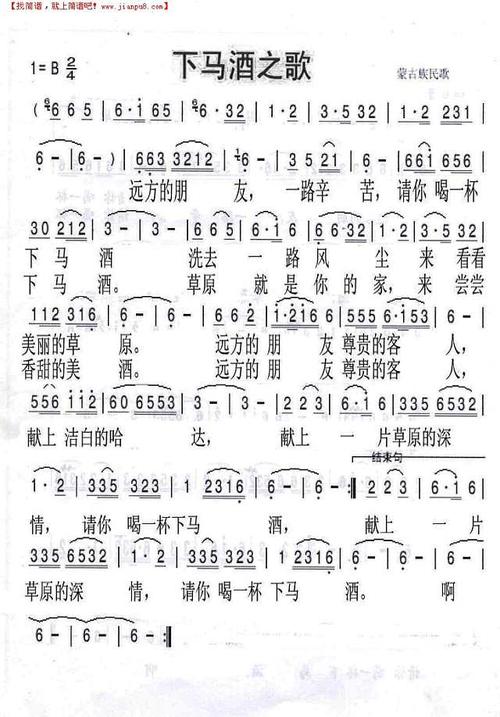 【找简谱,就上简谱吧!www.jianpu8.com】
下马酒之歌
1=B 2/4
蒙古族民歌
( 6 6 5 | 6·1 6 5 | 6·3 2 | 1·2 | 3 5 3 2 | 1·2 2 3 1 |
6 - | 6 - ) | 6 6 3 3 2 1 2 | 6 - | 3 0 5 2 1 | 6 - | 6 6 1 6 5 6 |
远方的朋 友, 一路辛 苦,请你 喝一杯
3 0 2 1 2 | 3 - | 3 - | 6 6 5 | 6·1 | 6 6·3 2 | 2 - | 3 5 3 2 |
下 马 酒 洗去 一 路 风 尘 来 看看
下 马 酒。 草原 就 是 你 的 家, 来 尝尝
1 1 2 3 1 6 | 6 - | 3 3 5 6 5 3 | 2 3 2 1 | 3 3 5 2 3 1 6 | 6 - |
美丽的草 原。 远方的 朋 友 尊贵的客 人,
香甜的美 酒。 远方的 朋 友 尊贵的客 人,
5 5 6 1 1 2 | 6 0 6 5 5 3 | 3 - | 1·2 3 | 6·1 6 | 3 3 5 6 5 3 2 |
献上 洁白的哈 达, 献上 一 片草原的深
结束句
1·2 | 3 3 5 3 2 3 | 1·2 | 2 3 1 6 | 6 - | 6 - :| 2·2 3 | 6·1 6 |
情, 请你 喝一杯下马 酒, 献上 一 片
3 3 5 6 5 3 2 | 1·2 | 3 3 5 3 2 3 | 1·2 | 2 3 1 6 | 6 - | 6·1 6 |
草原的深 情, 请你 喝一杯 下马 酒。 啊
6 - | 6 - :|